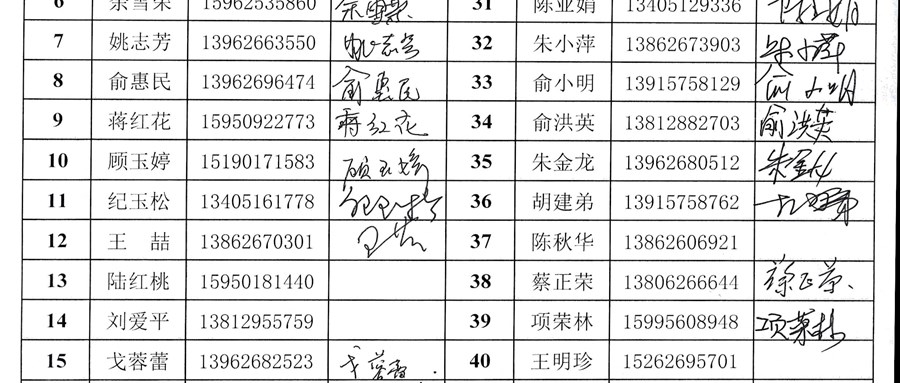 6 余雪荣 15962535860 余雪荣 31 陈亚娟 13405129336
7 姚志芳 13962663550 姚志芳 32 朱小萍 13862673903 朱小萍
8 俞惠民 13962696474 俞惠民 33 俞小明 13915758129 俞小明
9 蒋红花 15950922773 蒋红花 34 俞洪英 13812882703 俞洪英
10 顾玉婷 15190171583 顾玉婷 35 朱金龙 13962680512 朱金龙
11 纪玉松 13405161778 纪玉松 36 胡建弟 13915758762
12 王 喆 13862670301 王喆 37 陈秋华 13862606921
13 陆红桃 15950181440 38 蔡正荣 13806266644
14 刘爱平 13812955759 39 项荣林 15995608948 项荣林
15 戈蓉蕾 13962682523 戈蓉蕾 40 王明珍 15262695701